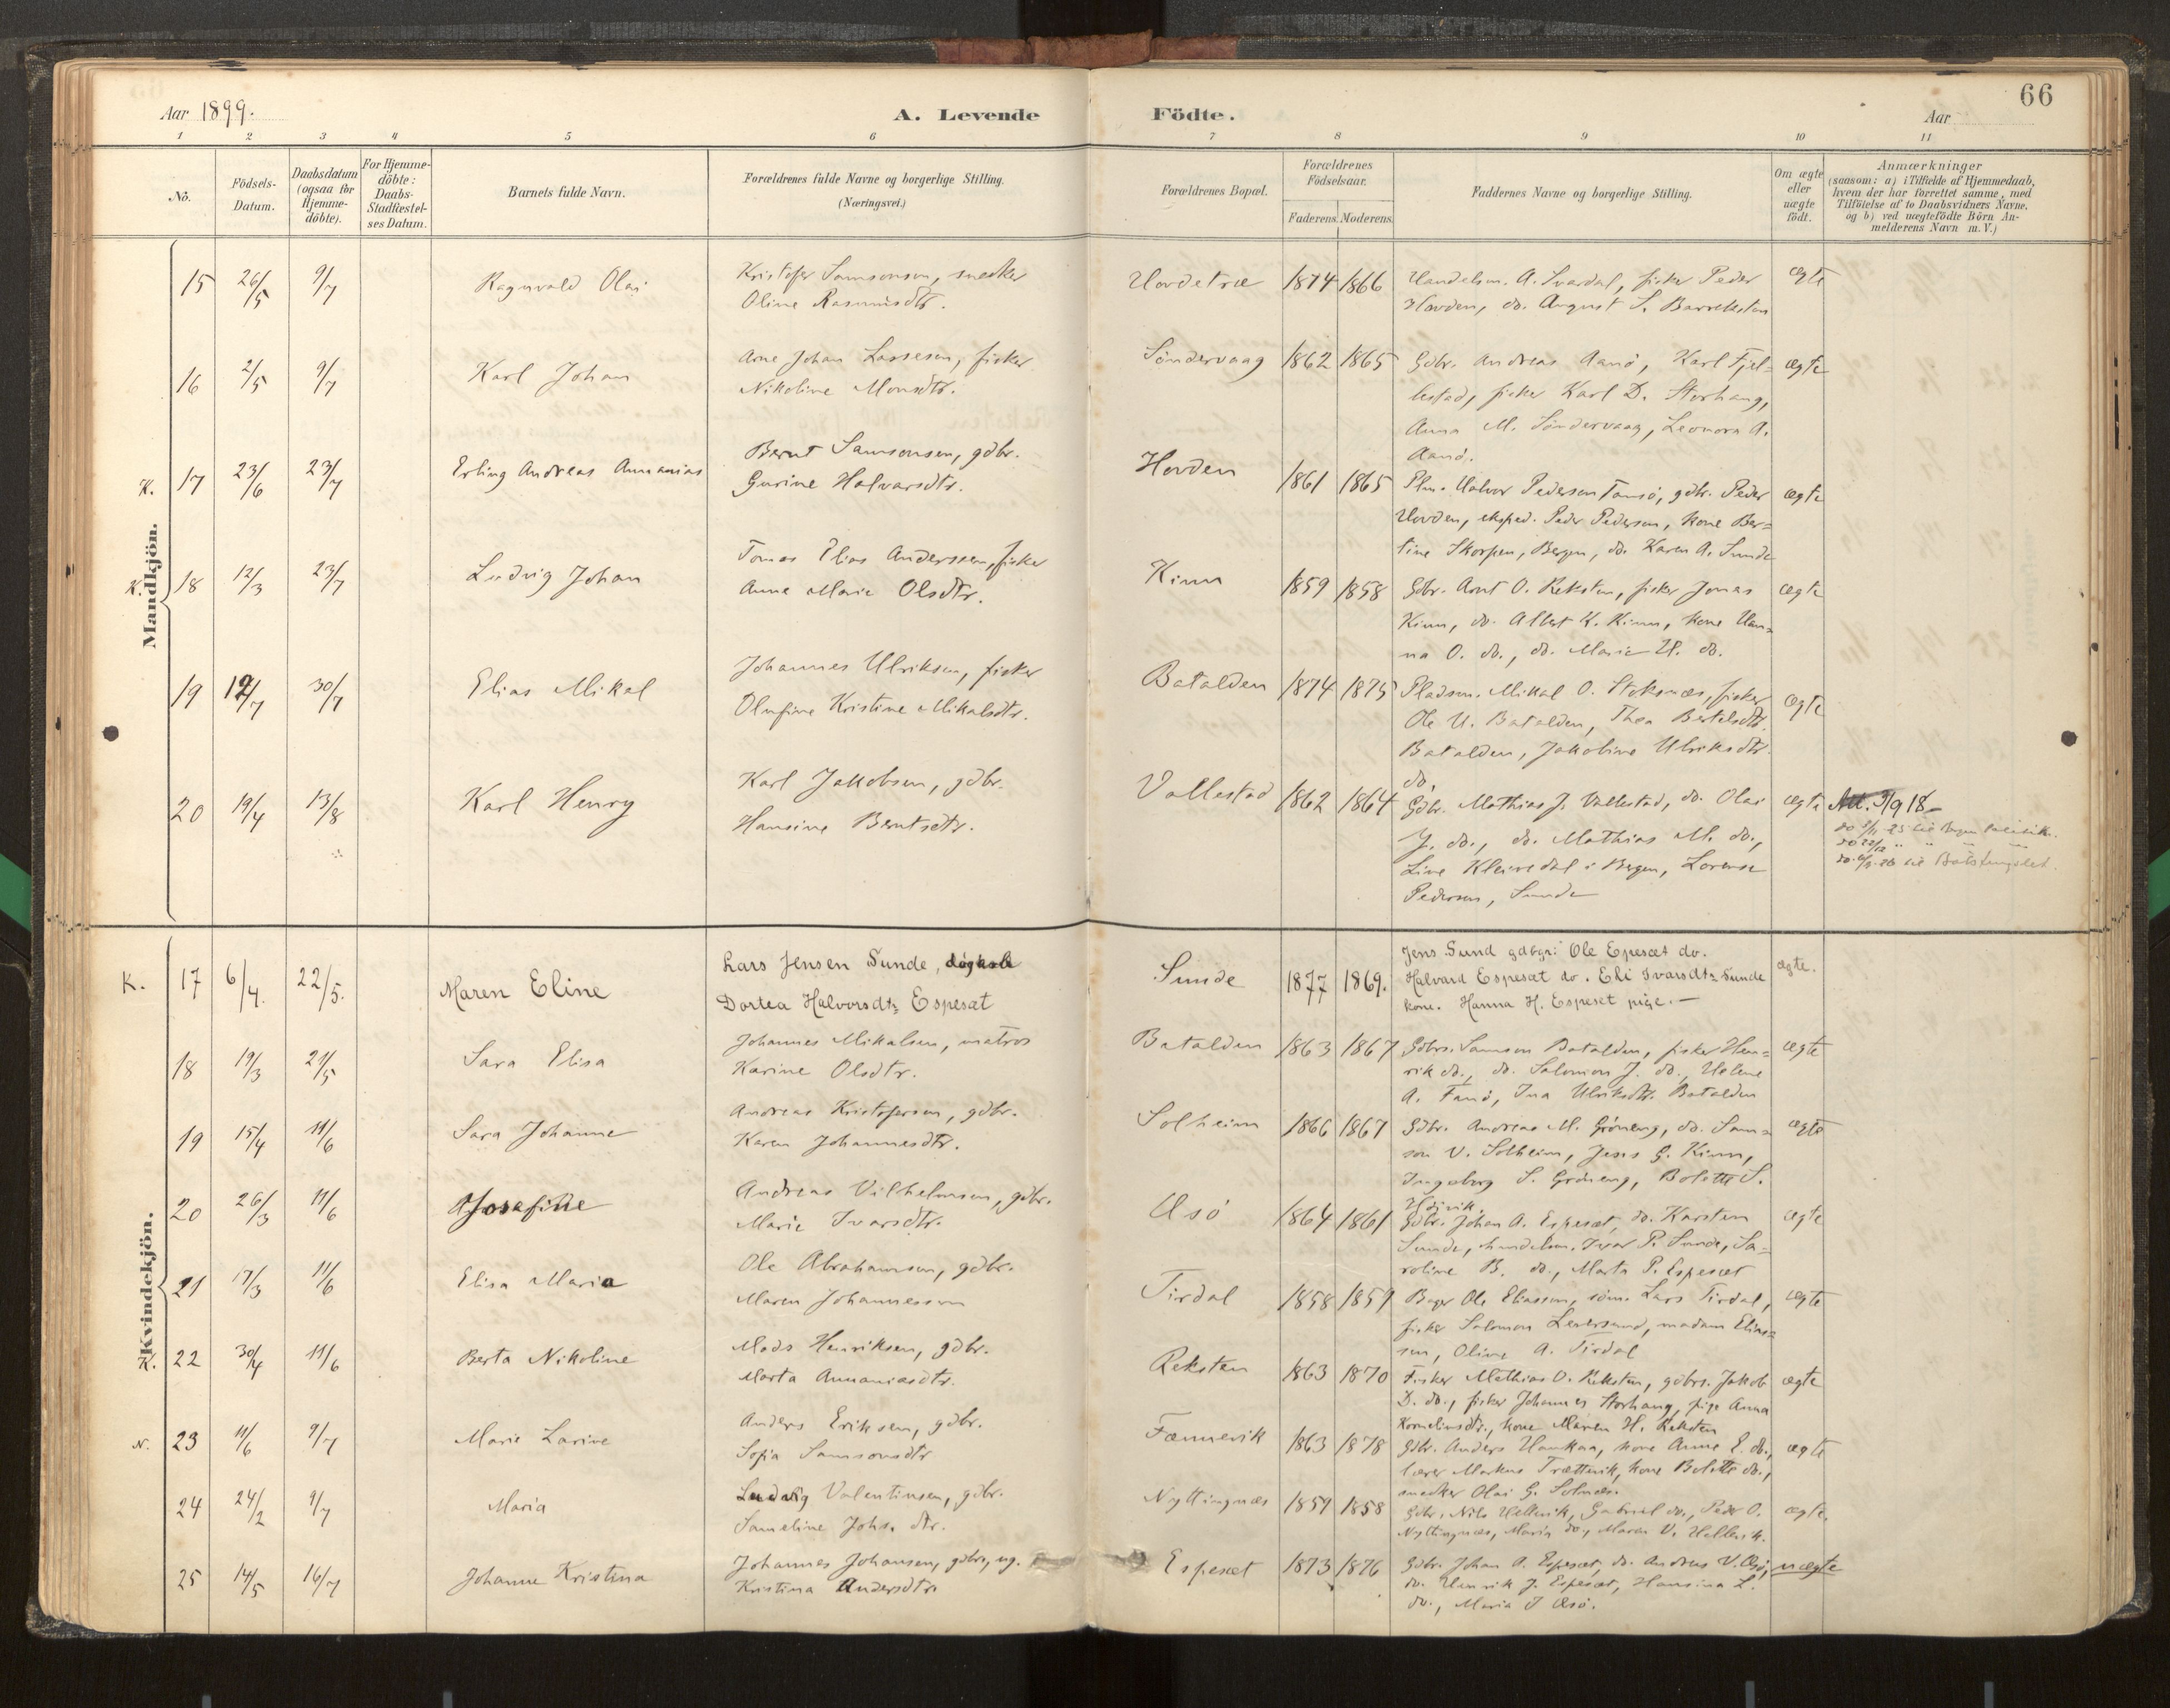 66
Aar 1899. A. Levende Födte. Aar
1 2 3 4 5 6 7 8 9 10 11
No.
Födsels-
Datum.
Daabsdatum
(ogsaa for
Hjemme-
döbte).
For Hjemme-
döbte:
Daabs-
Stadfæstel-
ses Datum.
Barnets fulde Navn.
Forældrenes fulde Navne og borgerlige Stilling.
(Næringsvei.)
Forældrenes Bopæl.
Forældrenes
Födselsaar.
Faderens. Moderens.
Faddernes Navne og borgerlige Stilling.
Om ægte
eller
uægte
födt.
Anmærkninger
(saasom: a) i Tilfælde af Hjemmedaab,
hvem der har forrettet samme, med
Tilföielse af to Daabsvidners Navne,
og b) ved uægtefödte Börn An-
melderens Navn m.V.)
Mandkjön.
15 26/5 9/7 Ragnvald Olai
Kristofer Samsonson, snedker
Oline Rasmusdtr.
Hovdetræ 1874 1866
Handelsm. A. Svardal, fisker Peder
Hovden, do. August S. Barreksten
ægte
16 2/5 9/7 Karl Johan
Arne Johan Lassesen, fisker
Nikoline Monsdtr.
Søndervaag 1862 1865
Gdbr. Andreas Aanø, Karl Fjel-
lestad, fisker Karl D. Storhaug,
Anna M. Søndervaag, Leonora A.
Aanø.
ægte
K. 17 23/6 23/7 Erling Andreas Annanias
Bernt Samsonsen, gdbr.
Gurine Halvarsdtr.
Hovden 1861 1865
Plm. Halvor Pederson Tansø, gdbr. Peder
Hovden, eksped. Peder Pederson, kone Ber-
tine Skorpen, Bergen, do. Karen A. Sunde
ægte
K. 18 12/3 23/7 Ludvig Johan
Tomas Elias Anderssen, fisker
Anne Marie Olsdtr.
Kinn 1859 1858
Gdbr. Arnt O. Reksten, fisker Jonas
Kinn, do. Albert K. Kinn, kone Han-
na O. do., do. Marie H. do.
ægte
19 12/7 30/7 Elias Mikal
Johannes Ulriksen, fisker
Olufine Kristine Mikalsdtr.
Batalden 1874 1875
Pladsm. Mikal O. Stoksnæs, fisker
Ole U. Batalden, Thea Bertelsdtr.
Batalden, Jakobine Ulriksdtr.
do.
ægte
20 19/4 13/8 Karl Henry
Karl Jakobsen, gdbr.
Hansine Berntsdtr.
Vallestad 1862 1864
Gdbr. Mathias J. Vallestad, do. Olai
J. do., do. Mathias M. do.,
Line Kleivedal i Bergen, Lorense
Pedersen, Sunde
ægte
Att. 3/9 18-
Kvindekjön.
K. 17 6/4. 22/5. Maren Eline
Lars Jensen Sunde,
Dortea Halvorsdtr Espesæt
Sunde 1877 1869.
Jens Sund gdbgr: Ole Espesæt do.
Halvard Espesæt do. Eli Ivarsdtr Sunde
kone. Hanna H. Espeset pige. —
ægte.
18 19/3 21/5 Sara Elisa
Johannes Mikalsen, matros
Karine Olsdtr.
Batalden 1863 1867
Gdbr. Samson Batalden, fisker Hen-
rik do., do. Salomon J. do., Helene
A. Fanø, Ina Ulriksdtr. Batalden
ægte
19 15/4 11/6 Sara Johanne
Andreas Kristofersen, gdbr.
Karen Johannesdtr.
Solheim 1866 1867
Gdbr. Andreas M. Grøneng, do. Sam-
son V. Solheim, Jens G. Kinn,
Ingeborg S. Grøneng, Bolette S.
Høivik.
ægte
20 26/3 11/6 Josefine
Andreas Vilhelmsen, gdbr.
Marie Ivarsdtr.
Æsø 1864 1861
Gdbr. Johan A. Espesæt, do. Karsten
Sunde, handelsm. Ivar P. Sunde, Ka-
roline B. do., Marta P. Espesæt
ægte
21 17/3 11/6 Elisa Maria
Ole Abrahamsen, gdbr.
Maren Johannessen
Tirdal 1858 1859
Bager Ole Eliassen, sömm. Lars Tirdal,
fisker Salomon Leversund, madam Elias-
sen, Oline A. Tirdal
ægte
K. 22 30/4 11/6 Berta Nikoline
Mads Henriksen, gdbr.
Marta Annaniasdtr.
Reksten 1863 1870
Fisker Mathias O. Reksten, gdbr. Jakob
D. do., fisker Johannes Storhaug, pige Anna
Korneliusdtr., kone Maren H. Reksten
ægte
N. 23 11/6 9/7 Marie Larine
Anders Eriksen, gdbr.
Sofia Samsonsdtr
Fannevik 1863 1878
Gdbr. Anders Haukaa, kone Anne E. do.,
lærer Markus Trættevik, kone Bolette do.,
snedker Olai G. Solnæs.
ægte
24 24/2 9/7 Maria
Ludvig Valentinsen, gdbr.
Sameline Johs. dtr.
Nyttingnæs 1859 1858
Gdbr. Nils Hellevik, Gabriel do., Peder O.
Nyttingnæs, Maria do., Maren V. Hellevik.
ægte.
25 14/5 16/7 Johanne Kristina
Johannes Johansen, gdbr., ug.
Kristina Andersdtr
Espesæt 1873 1876
Gdbr. Johan A. Espesæt, do. Andreas V. Æsø,
do. Henrik J. Espesæt, Hansina L.
do., Maria J Æsø.
uægte